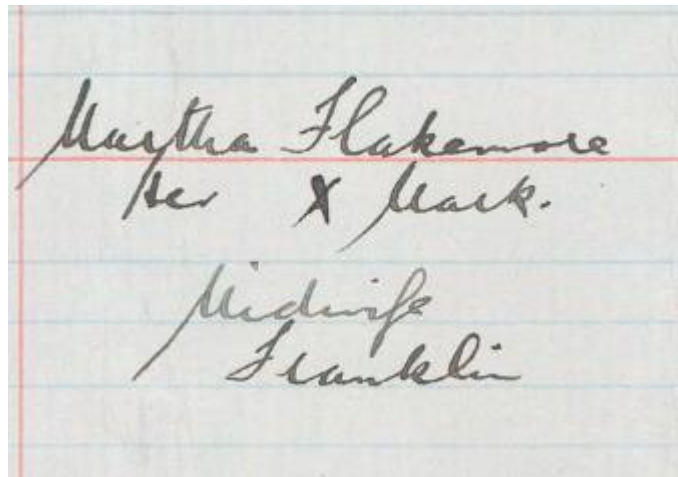 Martha Flakemore
Her X Mark.
Midwife
Franklin